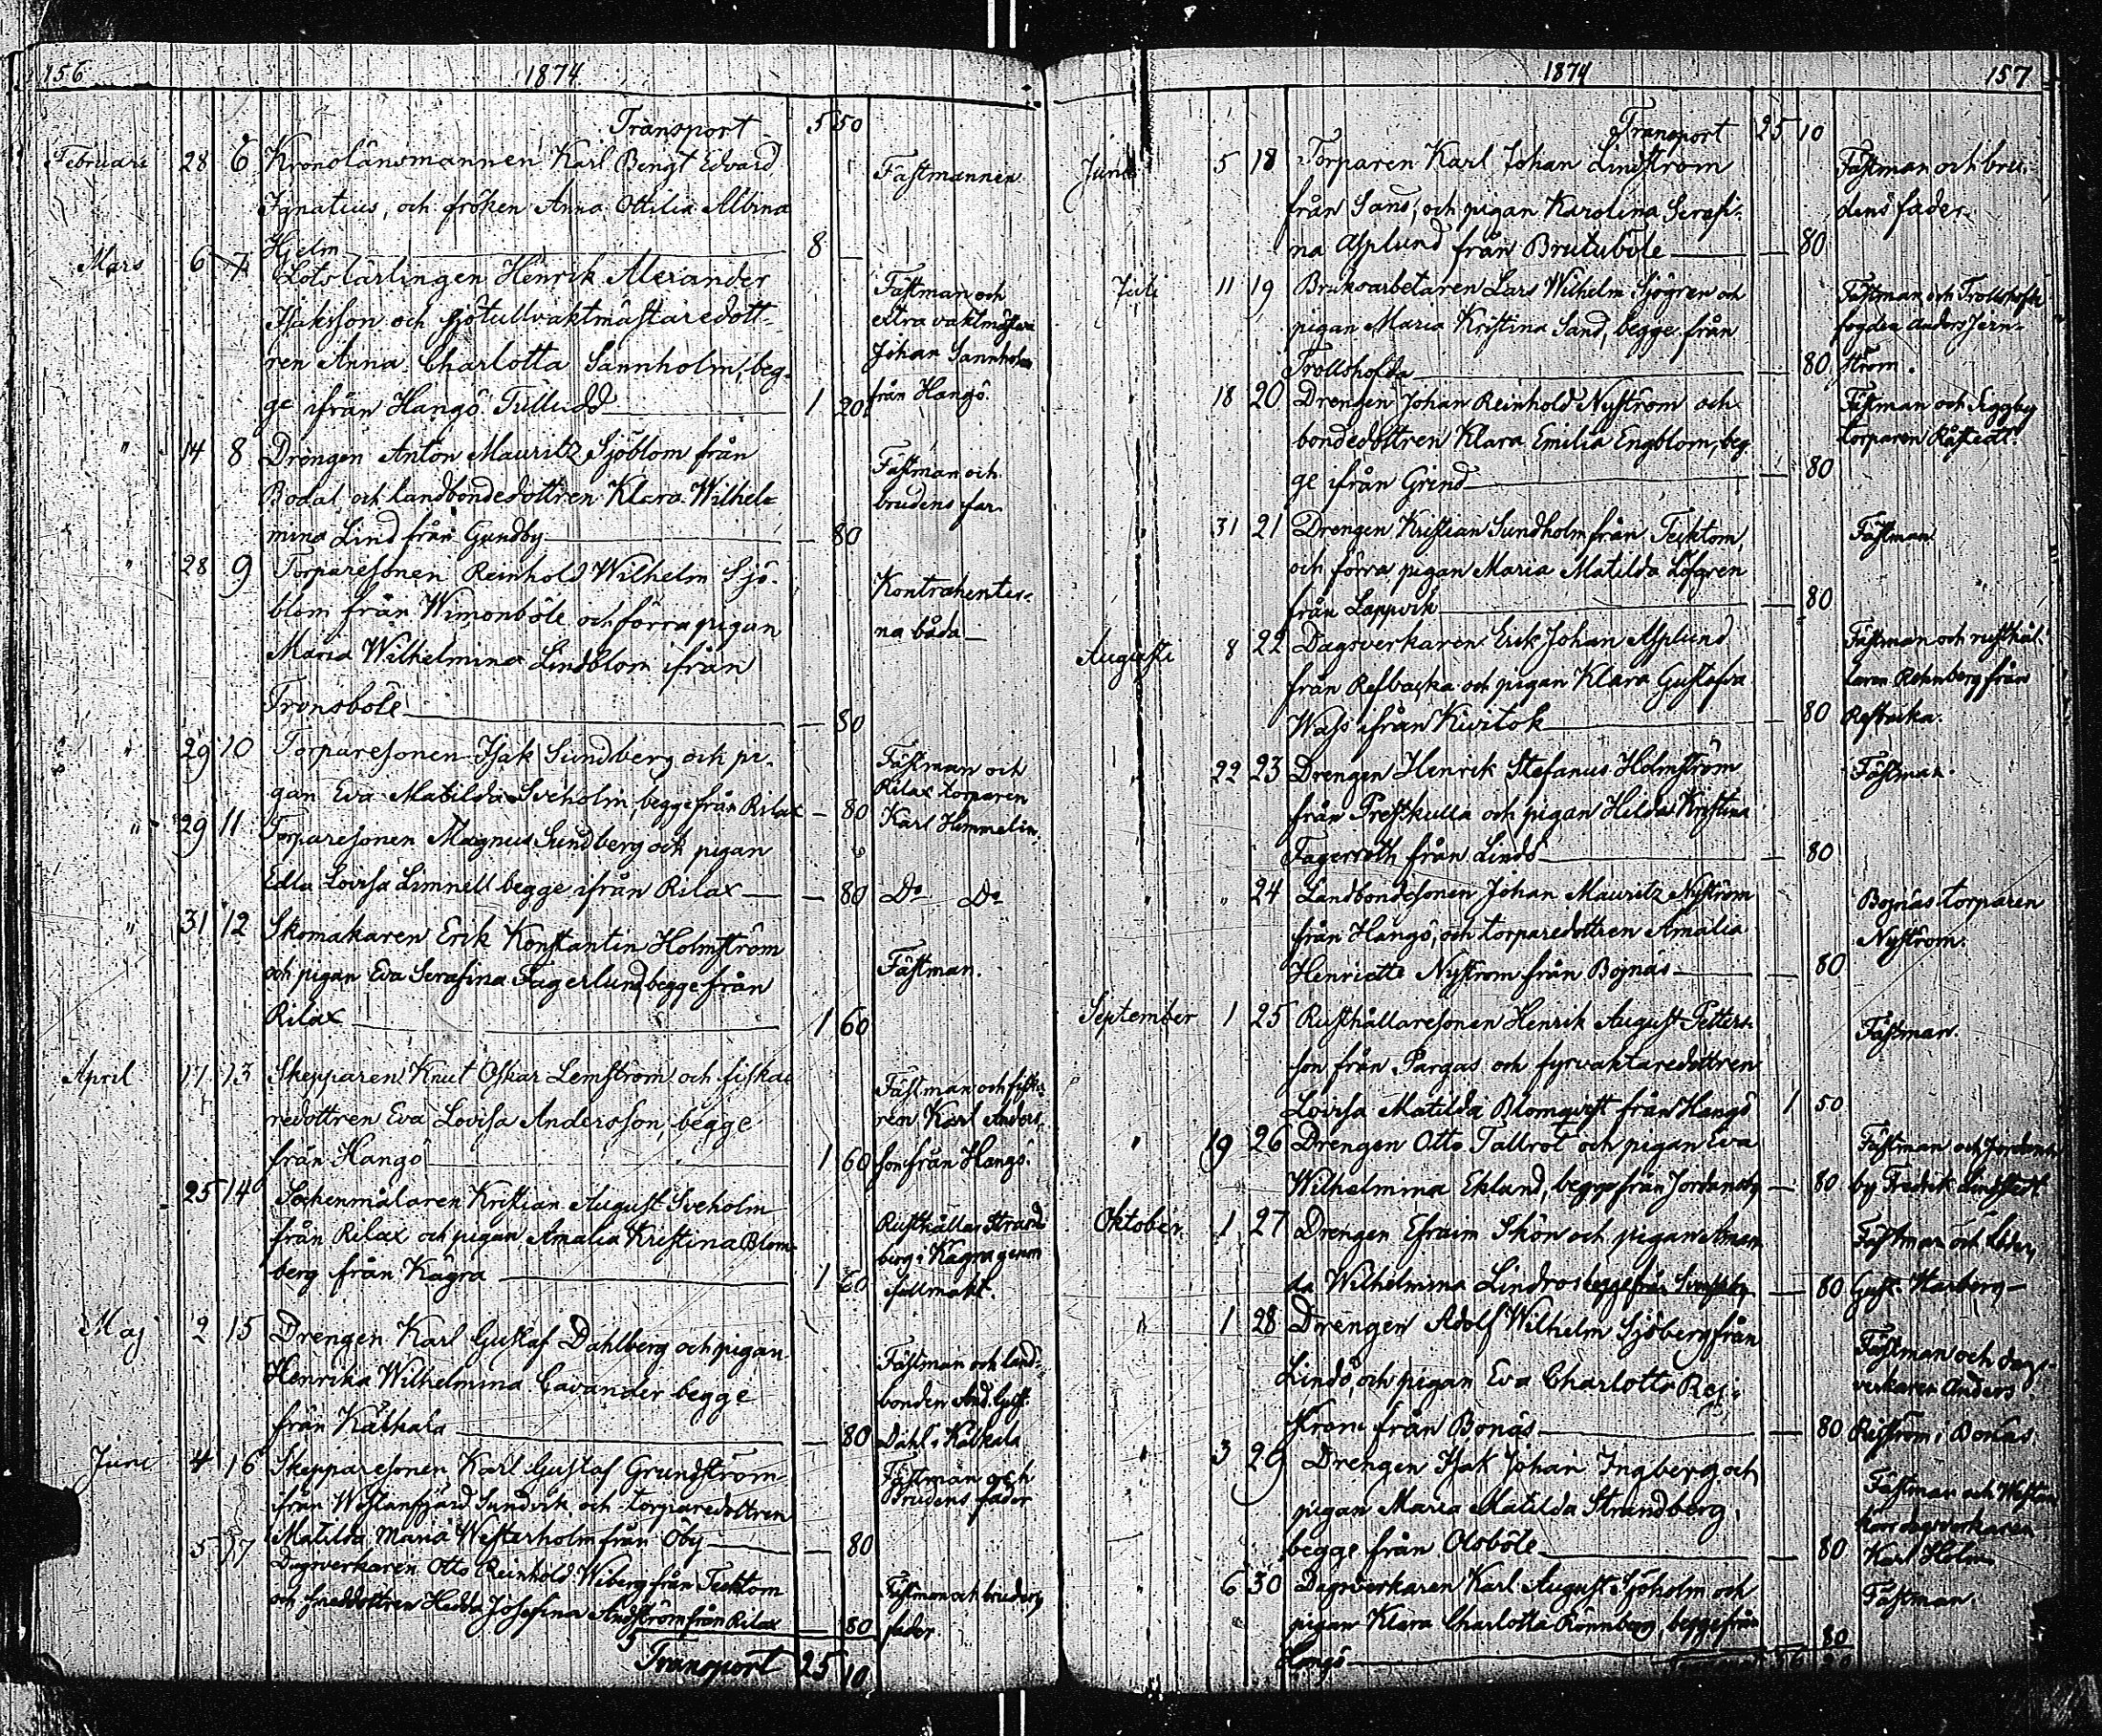 156 1874
Transport 5 50
Februari 28 6 Kronolänsmannen Karl Bengt Edvard Fästmannen
Ignatius, och fröken Anna Ottilia Albina
Hjelm 8 —
Mars 6 7 Lotslärlingen Henrik Alexander Fästman och
Isaksson och sjötullvaktmästaredott- extra vaktmästare
ren Anna Charlotta Sannholm, beg- Johan Sannholm
ge ifrån Hangö Tulludd 1 20 från Hangö.
" 14 8 Drängen Anton Mauritz Sjöblom från Fästman och
Bodal och landbondedottren Klara Wilhel- brudens far.
mina Lind från Gundby — 80
" 28 9 Torparesonen Reinhold Wilhelm Sjö- Kontrahenter-
blom från Wimonböle och förra pigan na båda
Maria Wilhelmina Lindblom ifrån
Tronsböle — 80
" " 29 10 Torparesonen Isak Sundberg och pi- Fästman och
gan Eva Matilda Sveholm, begge från Rilax — 80 Rilax torparen
Karl Himmelin.
" 29 11 Torparesonen Magnus Sundberg och pigan
Edla Lovisa Limnell begge ifrån Rilax — 80 Do Do
" 31 12 Skomakaren Erik Konstantin Holmström
och pigan Eva Serafina Fagerlund, begge från Fästman.
Rilax 1 60
April 17 13 Skepparen Knut Oskar Lemström och fiska- Fästman och fiska-
redottren Eva Lovisa Andersson, begge ren Karl Anders-
från Hangö 1 60 son från Hangö.
25 14 Sockenmålaren Kristian August Sveholm Rusthållar Strand-
från Rilax och pigan Amalia Kristina Blom- berg i Kagra genom
berg från Kagra 1 60 fullmakt.
Maj 2 15 Drengen Karl Gustaf Dahlberg och pigan Fästman och land-
Henrika Wilhelmina Cavander begge bonden And. Gust.
från Kälkala — 80 Dahl i Kälkala
Juni 4 16 Skepparesonen Karl Gustaf Grundström Fästman och
ifrån Westanfjärd Sundvik och torparedottren Brudens fader
Matilda Maria Westerholm från Öby — 80
5 17 Dagsverkaren Otto Reinhold Wiberg från Tecktom Fästman och brudens
och Hedda Josefina från Rilax — 80 fader.
Transport 25 10
1874 157
Transport 25 10
Juni 5 18 Torparen Karl Johan Lindström Fästman och bru-
från Sand, och pigan Karolina Serafi- dens fader.
na Asplund från Brutuböle — 80
Juli 11 19 Bruksarbetaren Lars Wilhelm Sjögren och Fästman och Trollshofda
pigan Maria Kristina Sand, begge från fogden Anders Jern-
Trollshofda — 80 ström.
18 20 Drengen Johan Reinhold Nyström och Fästman och Seggby
bondedottren Klara Emilia Engblom, beg- torparen
ge ifrån Grind — 80
" 31 21 Drengen Kristian Sundholm från Tecktom, Fästman
och förra pigan Maria Matilda Löfgren
från Lappvik — 80
Augusti 8 22 Dagsverkaren Erik Johan Asplund Fästman och rusthål-
från Refbacka och pigan Klara Gustafva laren Rehnberg från
Wass ifrån Kurtok — 80 Refbacka.
" 22 23 Drengen Henrik Stefanus Holmström Fästman.
från Prestkulla och pigan Hilda Kristina
Fagerroth från Lindö — 80
" " 24 Landbondesonen Johan Mauritz Nyström Bojnäs torparen
från Hangö, och torparedottren Amalia Nyström.
Henriette Nyström från Bojnäs — 80
September 1 25 Rusthållaresonen Henrik August Petters- Fästman.
son från Pargas och fyrvaktaredottren
Lovisa Matilda Blomqvist från Hangö 1 50
" 19 26 Drengen Otto Tallrot och pigan Eva Fästman och Jordans-
Wilhelmina Eklund, begge från Jordansby — 80 by Fredrik Lindstedt
Oktober 1 27 Drengen Efraim Skön och pigan Aman- Fästman och
da Wilhelmina Lindros begge från — 80 Gust.
" 1 28 Drengen Adolf Wilhelm Sjöberg från Fästman och dags-
Lindö, och pigan Eva Charlotta Rej- verkaren Anders
ström från Bonäs — 80 Rejström i Bonäs.
" 3 29 Drengen Isak Johan Ingberg och Fästman och
pigan Maria Matilda Strandberg, dagsverkaren
begge från Olsböle — 80 Karl Holm
" 6 30 Dagsverkaren Karl August Sjöholm och Fästman.
pigan Klara Charlotta Rönnberg, begge från
Hangö 80